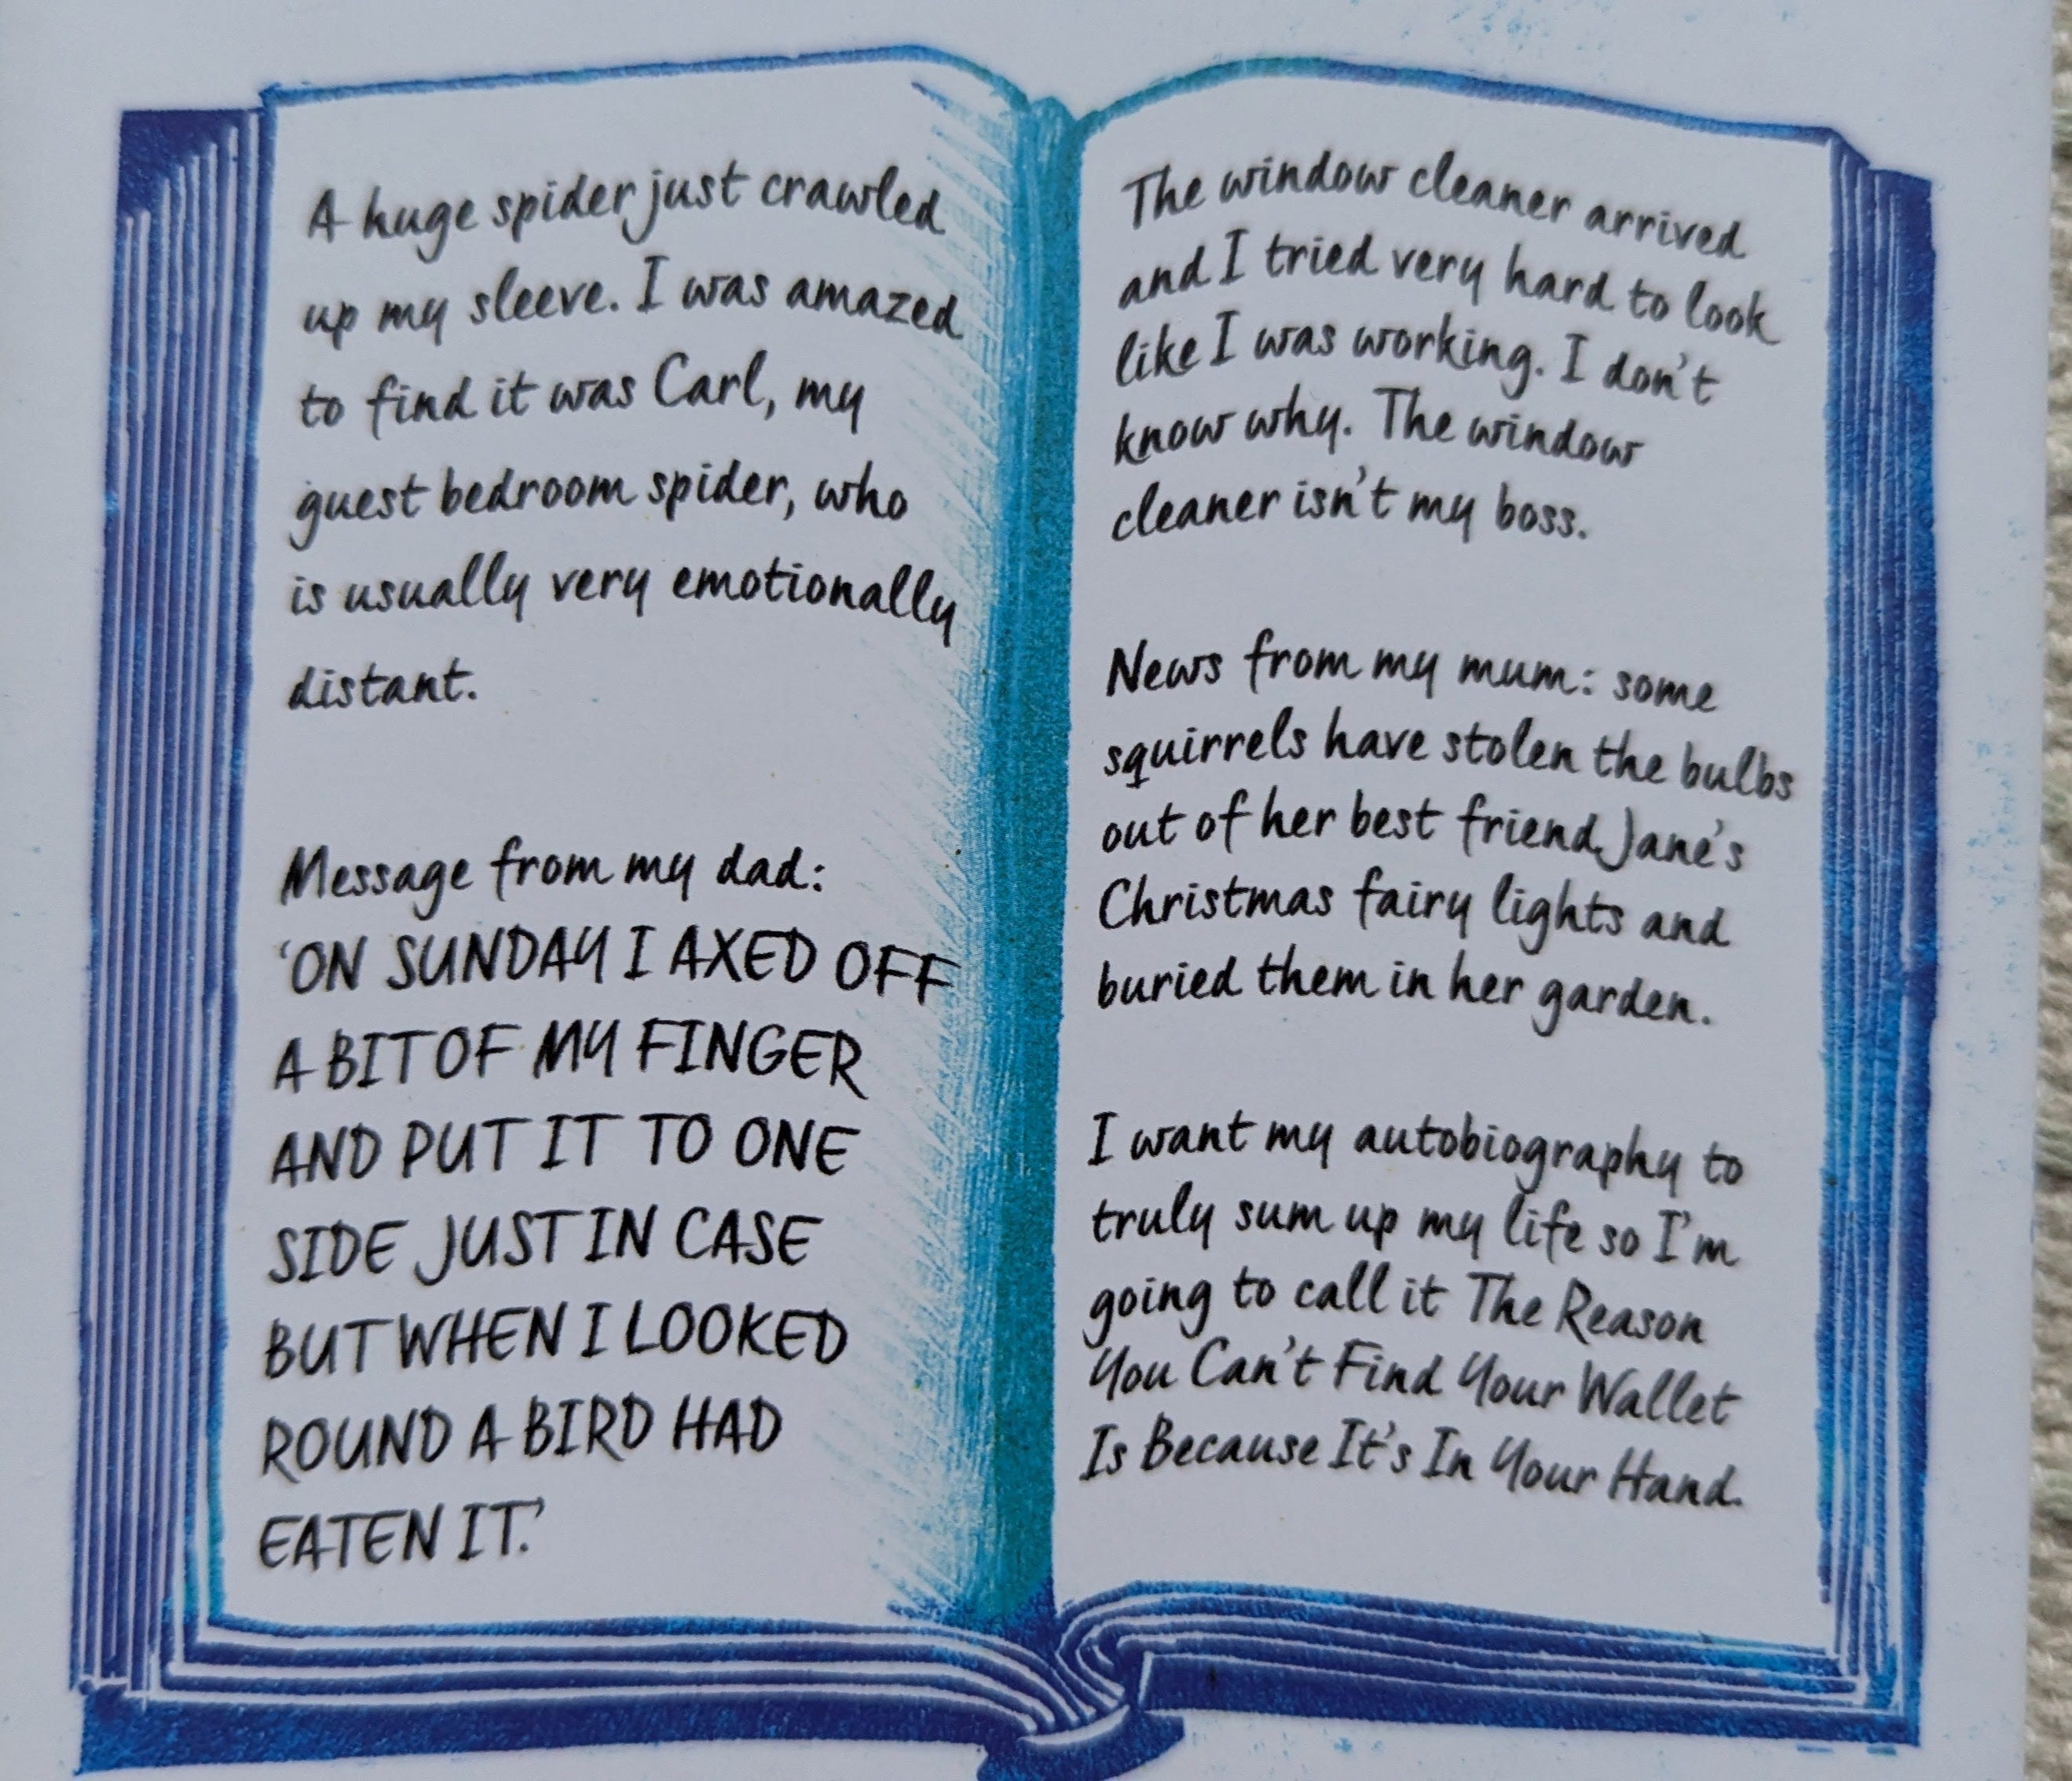 A huge spider just crawled
up my sleeve. I was amazed
to find it was Carl, my
guest bedroom spider, who
is usually very emotionally
distant.
Message from my dad:
'ON SUNDAY I AXED OFF
A BIT OF MY FINGER
AND PUT IT TO ONE
SIDE JUST IN CASE
BUT WHEN I LOOKED
ROUND A BIRD HAD
EATEN IT.'
The window cleaner arrived
and I tried very hard to look
like I was working. I don't
know why. The window
cleaner isn't my boss.
News from my mum: some
squirrels have stolen the bulbs
out of her best friend Jane's
Christmas fairy lights and
buried them in her garden.
I want my autobiography to
truly sum up my life so I'm
going to call it The Reason
You Can't Find Your Wallet
Is Because It's In Your Hand.